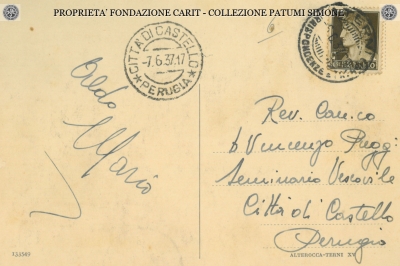 PROPRIETA' FONDAZIONE CARIT - COLLEZIONE PATUMI SIMONE
CITTÀ DI CASTELLO
-7.6.37.17
*PERUGIA*
6
CORRISPONDENZE
Aldo
Mario
Rev. Can.co
D Vincenzo Poggi
Seminario Vescovile
Città di Castello
Perugia
ALTEROCCA-TERNI XV